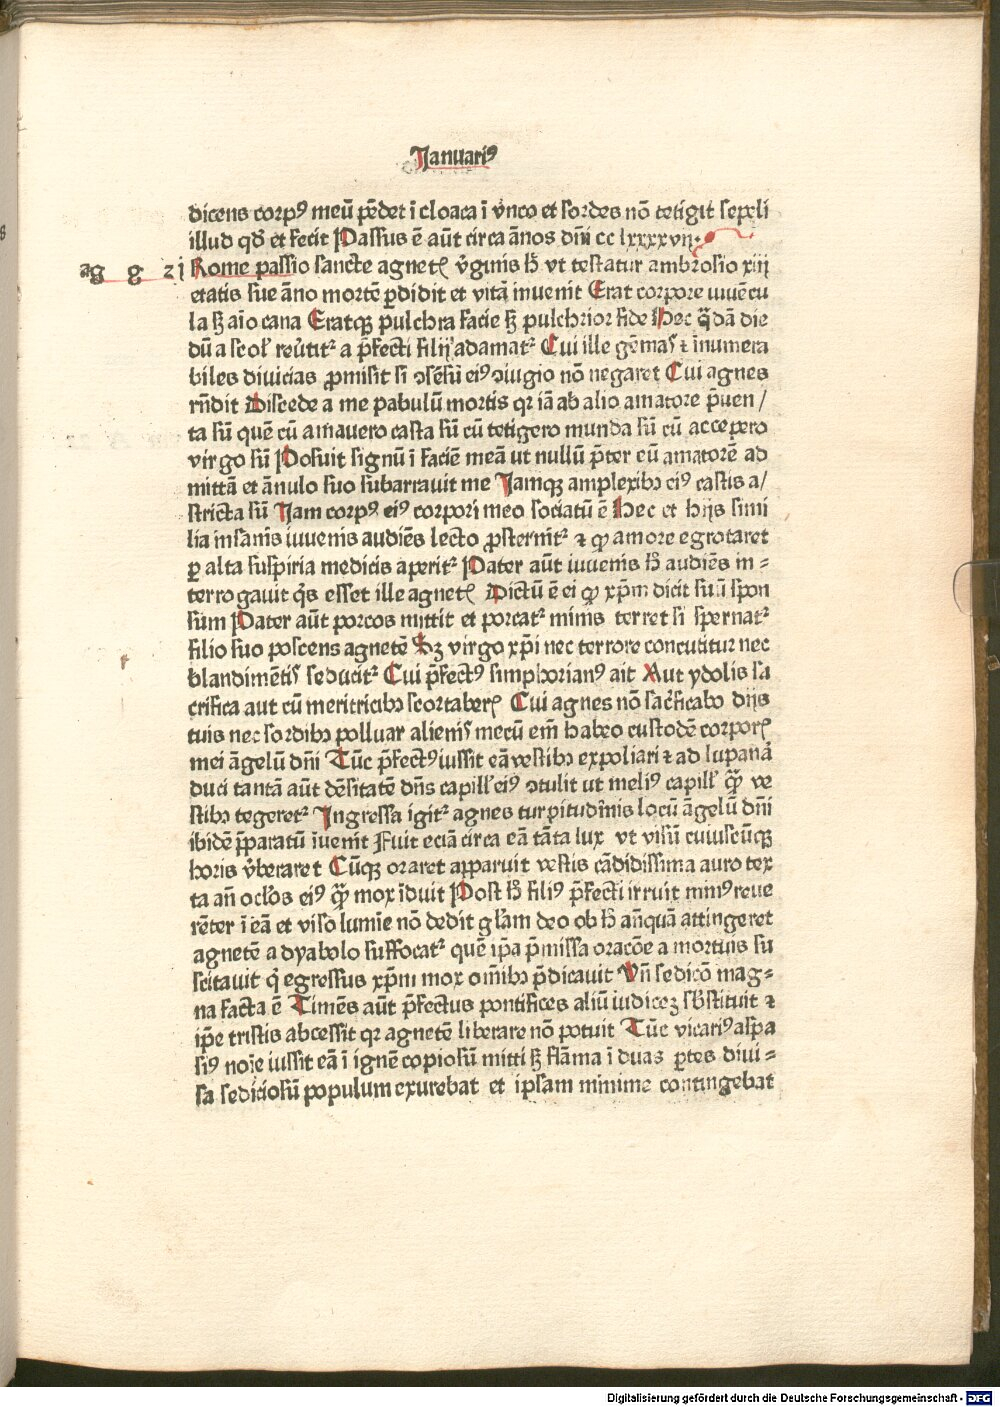 Januariꝰ
dicens corpꝰ meū pēdet ī cloaca ī vnco et sordes nō tetigit sepeli
illud qd̄ et fecit Passus ē aūt circa ānos dn̄i cc lxxxxvij.
ag g zj Rome passio sancte agnetꝭ v̓ginis hȝ vt testatur ambrosio xiij
etatis sue āno mortē ꝑdidit et vitā invenit Erat corpore iuuēcu
la sȝ aīo cana Eratqꝫ pulchra facie sȝ pulchrior fide Hec q̄dā die
dū a scol̓ reūtit᷑ a p̄fecti filij adamat᷑ Cui ille gēmas ⁊ īnumera
biles divicias ꝓmisit si ↄsēsū eiꝰ ↄiugio nō negaret Cui agnes
rn̄dit Discede a me pabulū mortis qꝛ iā ab alio amatore p̄uen/
ta sū quē cū amavero casta sū cū tetigero munda sū cū accepero
virgo sū Posuit signū ī faciē meā ut nullū p̄ter eū amatorē ad
mittā et ānulo suo subarravit me Jamqꝫ amplexibꝫ eiꝰ castis a/
stricta sū Jam corpꝰ eiꝰ corpori meo sociatū ē Hec et hijs simi
lia insanis iuvenis audiēs lecto ꝓsternit᷑ ⁊ ꝙ amore egrotaret
ꝑ alta suspiria medicis aperit᷑ Pater aūt iuvenis hȝ audiēs in⸗
terrogavit q̓s esset ille agnetꝭ Dictū ē ei ꝙ xp̄m dicit suū spon
sum Pater aūt porcos mittit et porcat᷑ minis terret si spernat᷑
filio suo poscens agnetē Sȝ virgo xp̄i nec terrore concutitur nec
blandimētis seducit᷑ Cui p̄fectꝰ simphorianꝰ ait Aut ydolis sa
crifica aut cū meritricibꝫ scortaberꝭ Cui agnes nō sacrificabo dijs
tuis nec sordibꝫ polluar alienis mecū em̄ habeo custodē corporꝭ
mei āgelū dn̄i Tūc p̄fectꝰ iussit eā vestibꝫ expoliari ⁊ ad lupanā
duci tantā aūt dēsitatē dn̄s capill̓ eiꝰ ↄtulit ut meliꝰ capill̓ ꝙ̄ ve
stibꝫ tegeret᷑ Ingressa igit᷑ agnes turpitudīnis locū āgelū dn̄i
ibidē p̄paratū īvenit Fuit eciā circa eā tāta lux vt visū cuiuscūqꝫ
horis v̓beraret Cūqꝫ oraret apparuit vestis cādidissima auro tex
ta an̄ oclos eiꝰ ꝙ̄ mox īduit Post hȝ filiꝰ p̄fecti irruit minꝰ reue
rēter ī eā et viso lumīe nō dedit gl̄am deo ob hȝ an̄quā attingeret
agnetē a dyabolo suffocat᷑ quē ip̄a p̄missa oracōe a mortuis su
scitavit q̓ egressus xp̄m mox om̄ibꝫ p̄dicavit Vn̄ sedicō mag⸗
na facta ē Timēs aūt p̄fectus pontifices aliū iudicē sb̄stituit ⁊
ip̄e tristis abcessit qꝛ agnetē liberare nō potuit Tūc vicariꝰ aspa
siꝰ noīe iussit eā ī ignē copiosū mitti sȝ flāma ī duas ꝑtes divi⸗
sa sediciosū populum exurebat et ipsam minime contingebat
Digitalisierung gefördert durch die Deutsche Forschungsgemeinschaft - DFG